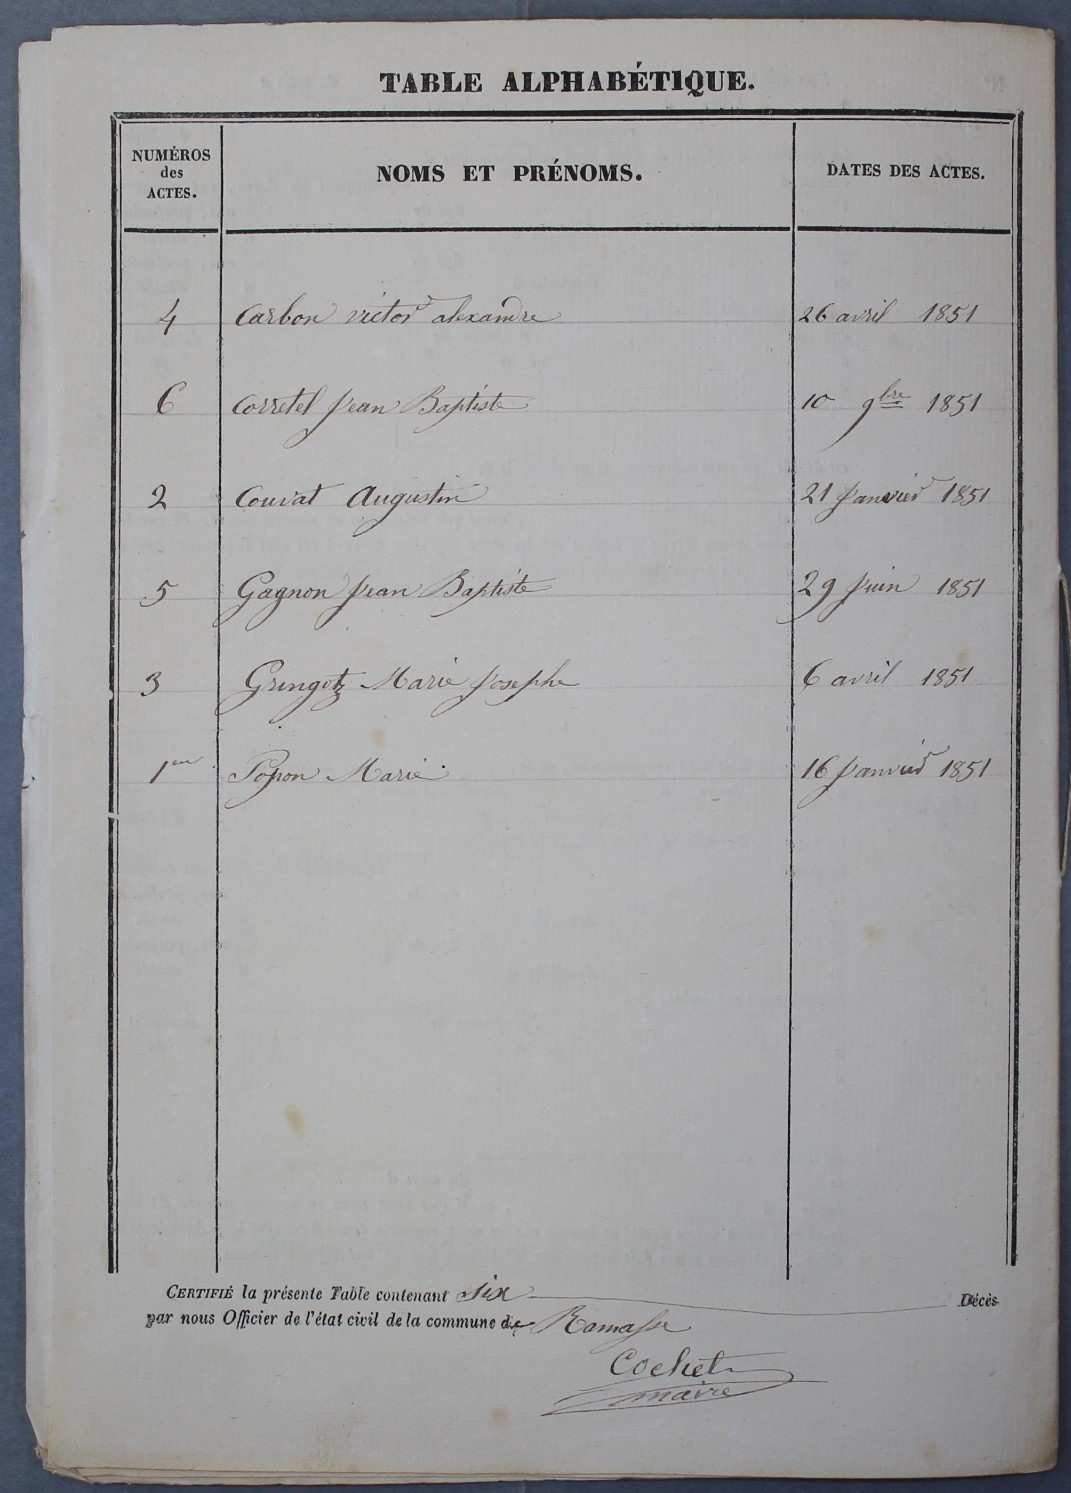 TABLE ALPHABÉTIQUE.
NUMÉROS
des
ACTES.
NOMS ET PRÉNOMS.
DATES DES ACTES.
4 Carbon victor alexandre 26 avril 1851
6 Corretel Jean Baptiste 10 9bre 1851
2 Courat Augustin 21 Janvier 1851
5 Gagnon Jean Baptiste 29 Juin 1851
3 Gringotz Marie Josephe 6 avril 1851
1er Popon Marie 16 Janvier 1851
CERTIFIÉ la présente Table contenant Six Décès
par nous Officier de l'état civil de la commune de Ramasse
Cochet
maire